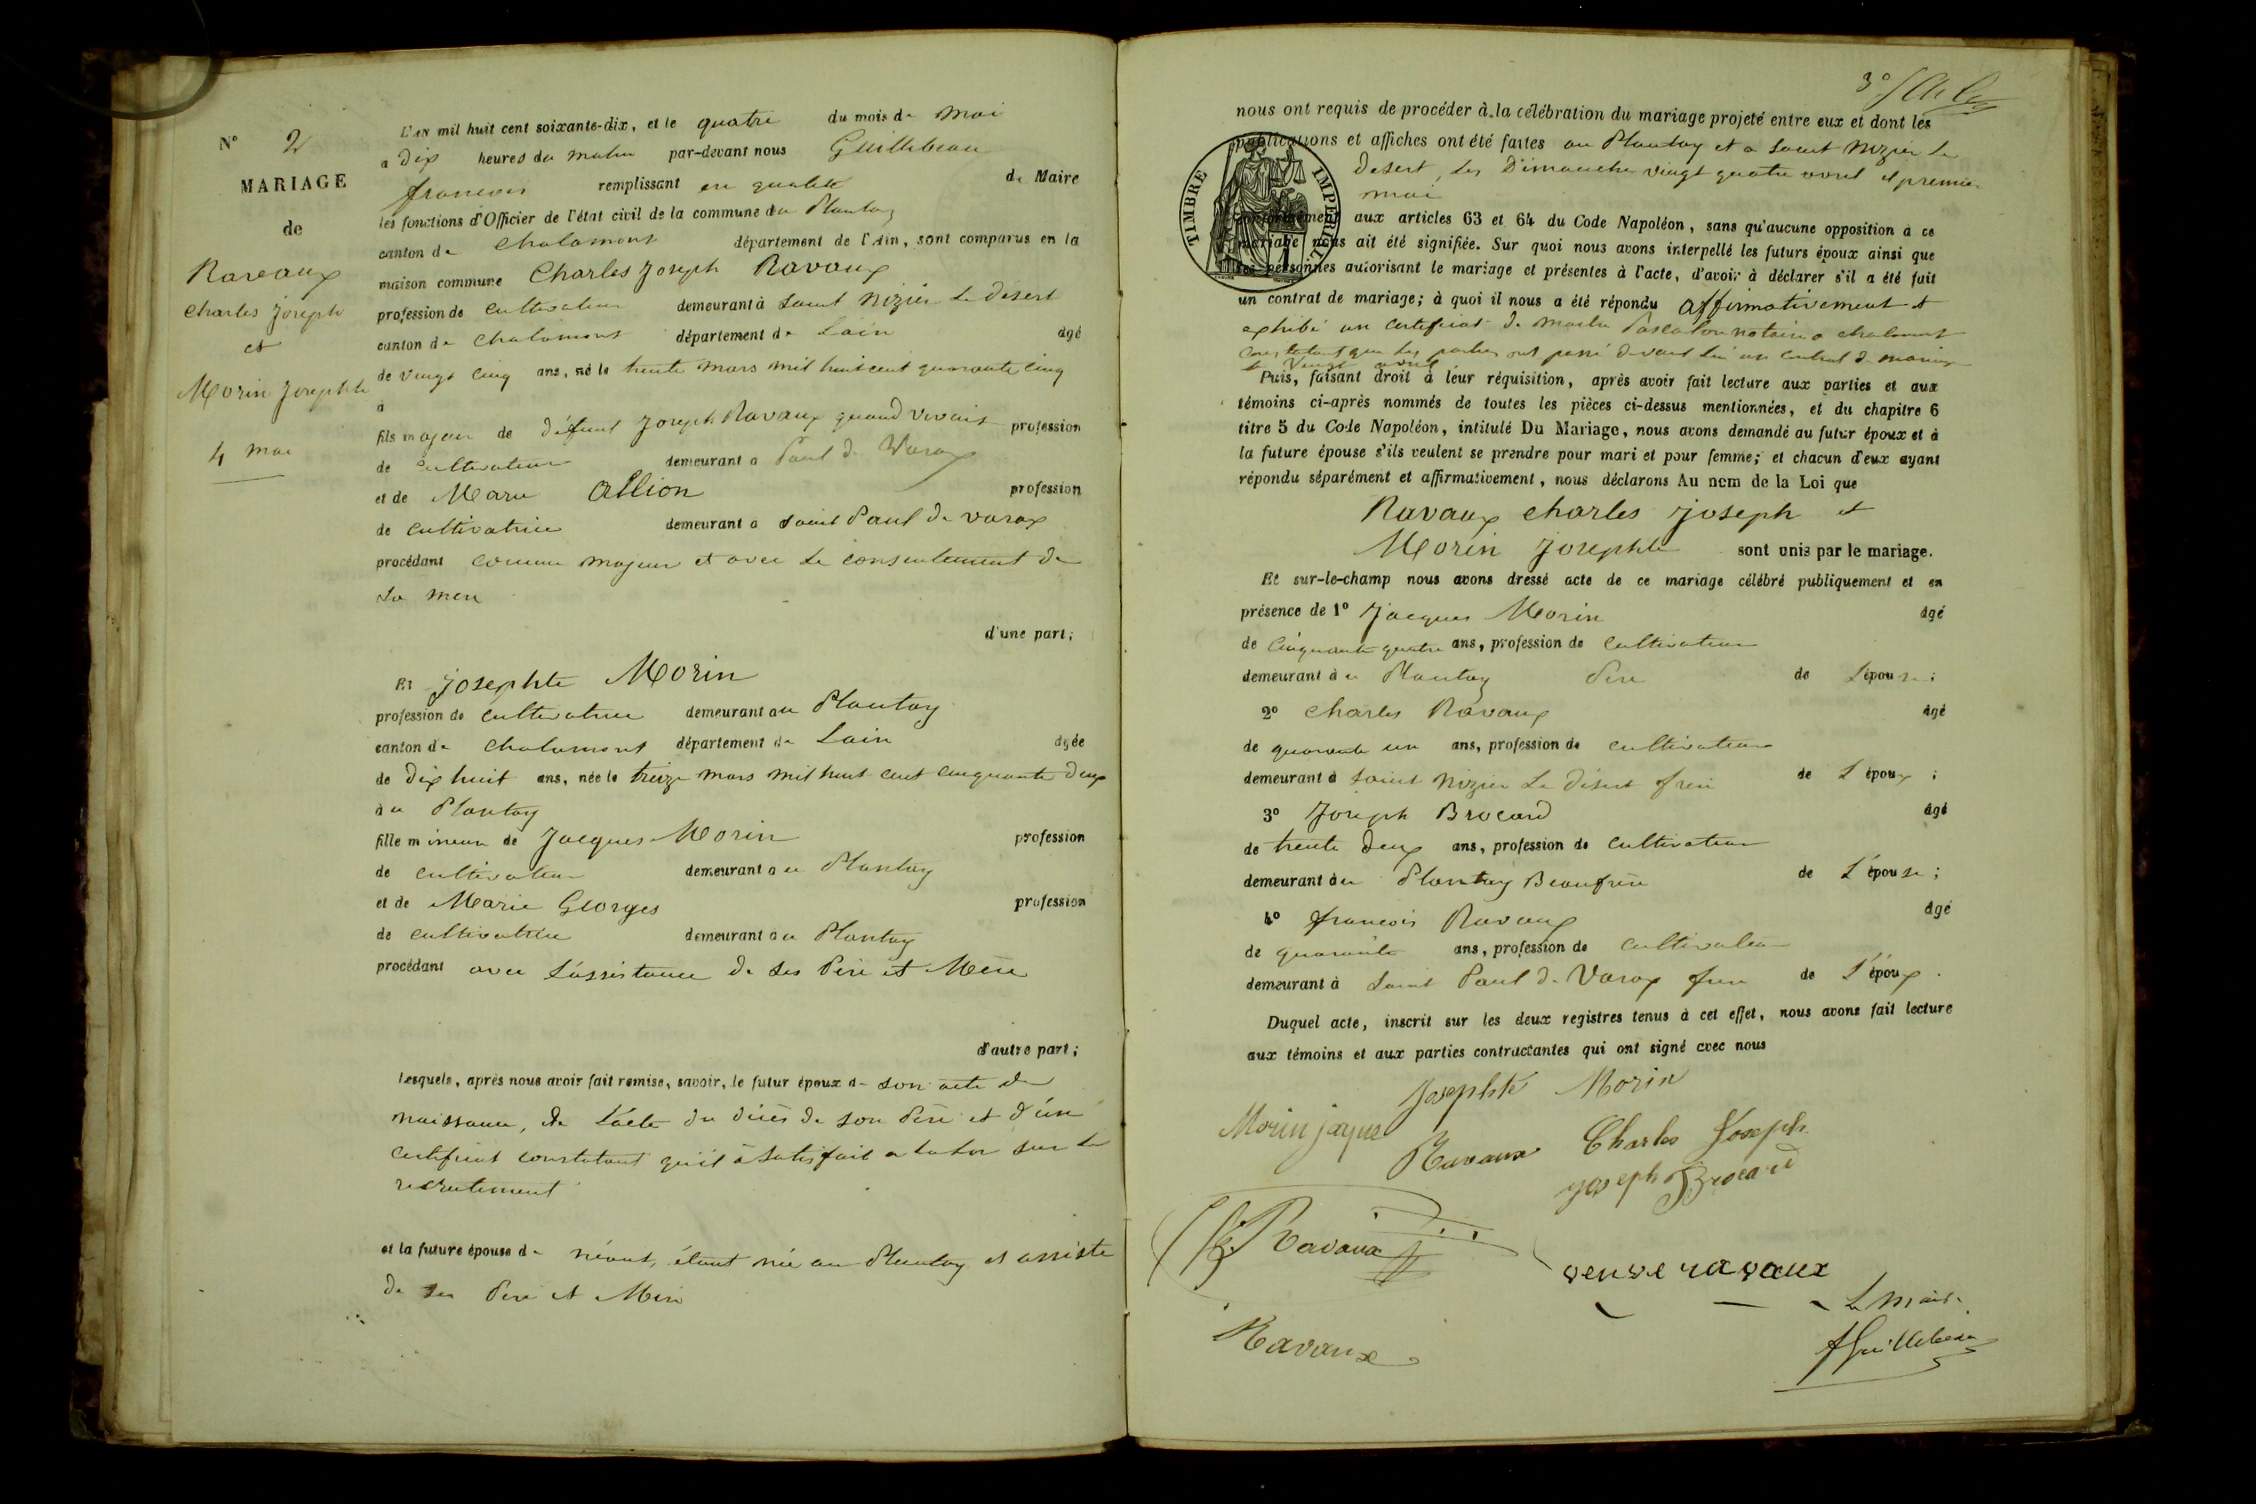 N° 2
MARIAGE
de
Raveaux
Charles Joseph
et
Morin Josephte
4 mai
L'AN mil huit cent soixante-dix, et le quatre du mois de Mai
a Dix heures du matin par-devant nous Guillebeau
francois remplissant en qualité de Maire
les fonctions d'Officier de l'état civil de la commune du Plantay
canton de Chalamont département de l'Ain, sont comparus en la
maison commune Charles Joseph Ravaux
profession de cultivateur demeurant à Saint Nizier Le Désert
canton de Chalamont département de Lain âgé
de vingt cinq ans, né le trente mars mil huit cent quarante cinq
à
fils majeur de défunt Joseph Ravaux quand vivait profession
de cultivateur demeurant a Paul de Varax
et de Marie Allion profession
de cultivatrice demeurant a saint Paul de varax
procédant comme majeur et avec le consentement de
sa mere
d'une part;
Et Josephte Morin
profession de cultivatrice demeurant au Plantay
canton de Chalamont département de Lain âgée
de dix huit ans, née le treize mars mil huit cent cinquante deux
au Plantay
fille mineure de Jacques Morin profession
de cultivateur demeurant au Plantay
et de Marie Georges profession
de cultivatrice demeurant au Plantay
procédant avec L'assistance de ses Père et Mère
d'autre part;
Lesquels, après nous avoir fait remise, savoir, le futur époux de son acte de
naissance, de L'acte du décès de son Père et d'un
certificat constatant qu'il à satisfait a la loi sur le
recrutement
et la future épouse de néant, étant née au Plantay et assiste
de ses Père et Mère
3°
nous ont requis de procéder à la célébration du mariage projeté entre eux et dont les
publications et affiches ont été faites au Plantay et a saint Nizier Le
desert, Les Dimanches vingt quatre avril et premier
mai
TIMBRE IMPERIAL
conformément aux articles 63 et 64 du Code Napoléon, sans qu'aucune opposition à ce
mariage nous ait été signifiée. Sur quoi nous avons interpellé les futurs époux ainsi que
les personnes autorisant le mariage et présentes à l'acte, d'avoir à déclarer s'il a été fait
un contrat de mariage; à quoi il nous a été répondu affirmativement et
exhibé un certificat de Maitre notaire a chalamont
constatant que Les parties ont passé devant lui un contrat de mariage
le Vingt avril
Puis, faisant droit à leur réquisition, après avoir fait lecture aux parties et aux
témoins ci-après nommés de toutes les pièces ci-dessus mentionnées, et du chapitre 6
titre 5 du Code Napoléon, intitulé Du Mariage, nous avons demandé au futur époux et à
la future épouse s'ils veulent se prendre pour mari et pour femme; et chacun d'eux ayant
répondu séparément et affirmativement, nous déclarons Au nom de la Loi que
Ravaux charles Joseph et
Morin Josephte sont unis par le mariage.
Et sur-le-champ nous avons dressé acte de ce mariage célébré publiquement et en
présence de 1° Jacques Morin âgé
de Cinquante quatre ans, profession de cultivateur
demeurant à u Plantay Père de L'épouse;
2° Charles Ravaux âgé
de quarante un ans, profession de cultivateur
demeurant à saint Nizier Le désert frere de L'époux;
3° Joseph Brocard âgé
de trente deux ans, profession de cultivateur
demeurant àu Plantay Beaufrère de L'épouse;
4° francois Ravaux âgé
de quarante ans, profession de cultivateur
demeurant à saint Paul de Varax frere de L'époux.
Duquel acte, inscrit sur les deux registres tenus à cet effet, nous avons fait lecture
aux témoins et aux parties contractantes qui ont signé avec nous
Josephte Morin
Morin jaque
Ravaux Charles Joseph
joseph Brocard
Ravaux
veuve ravaux
Le Maire
Ravaux
fGuillebeau